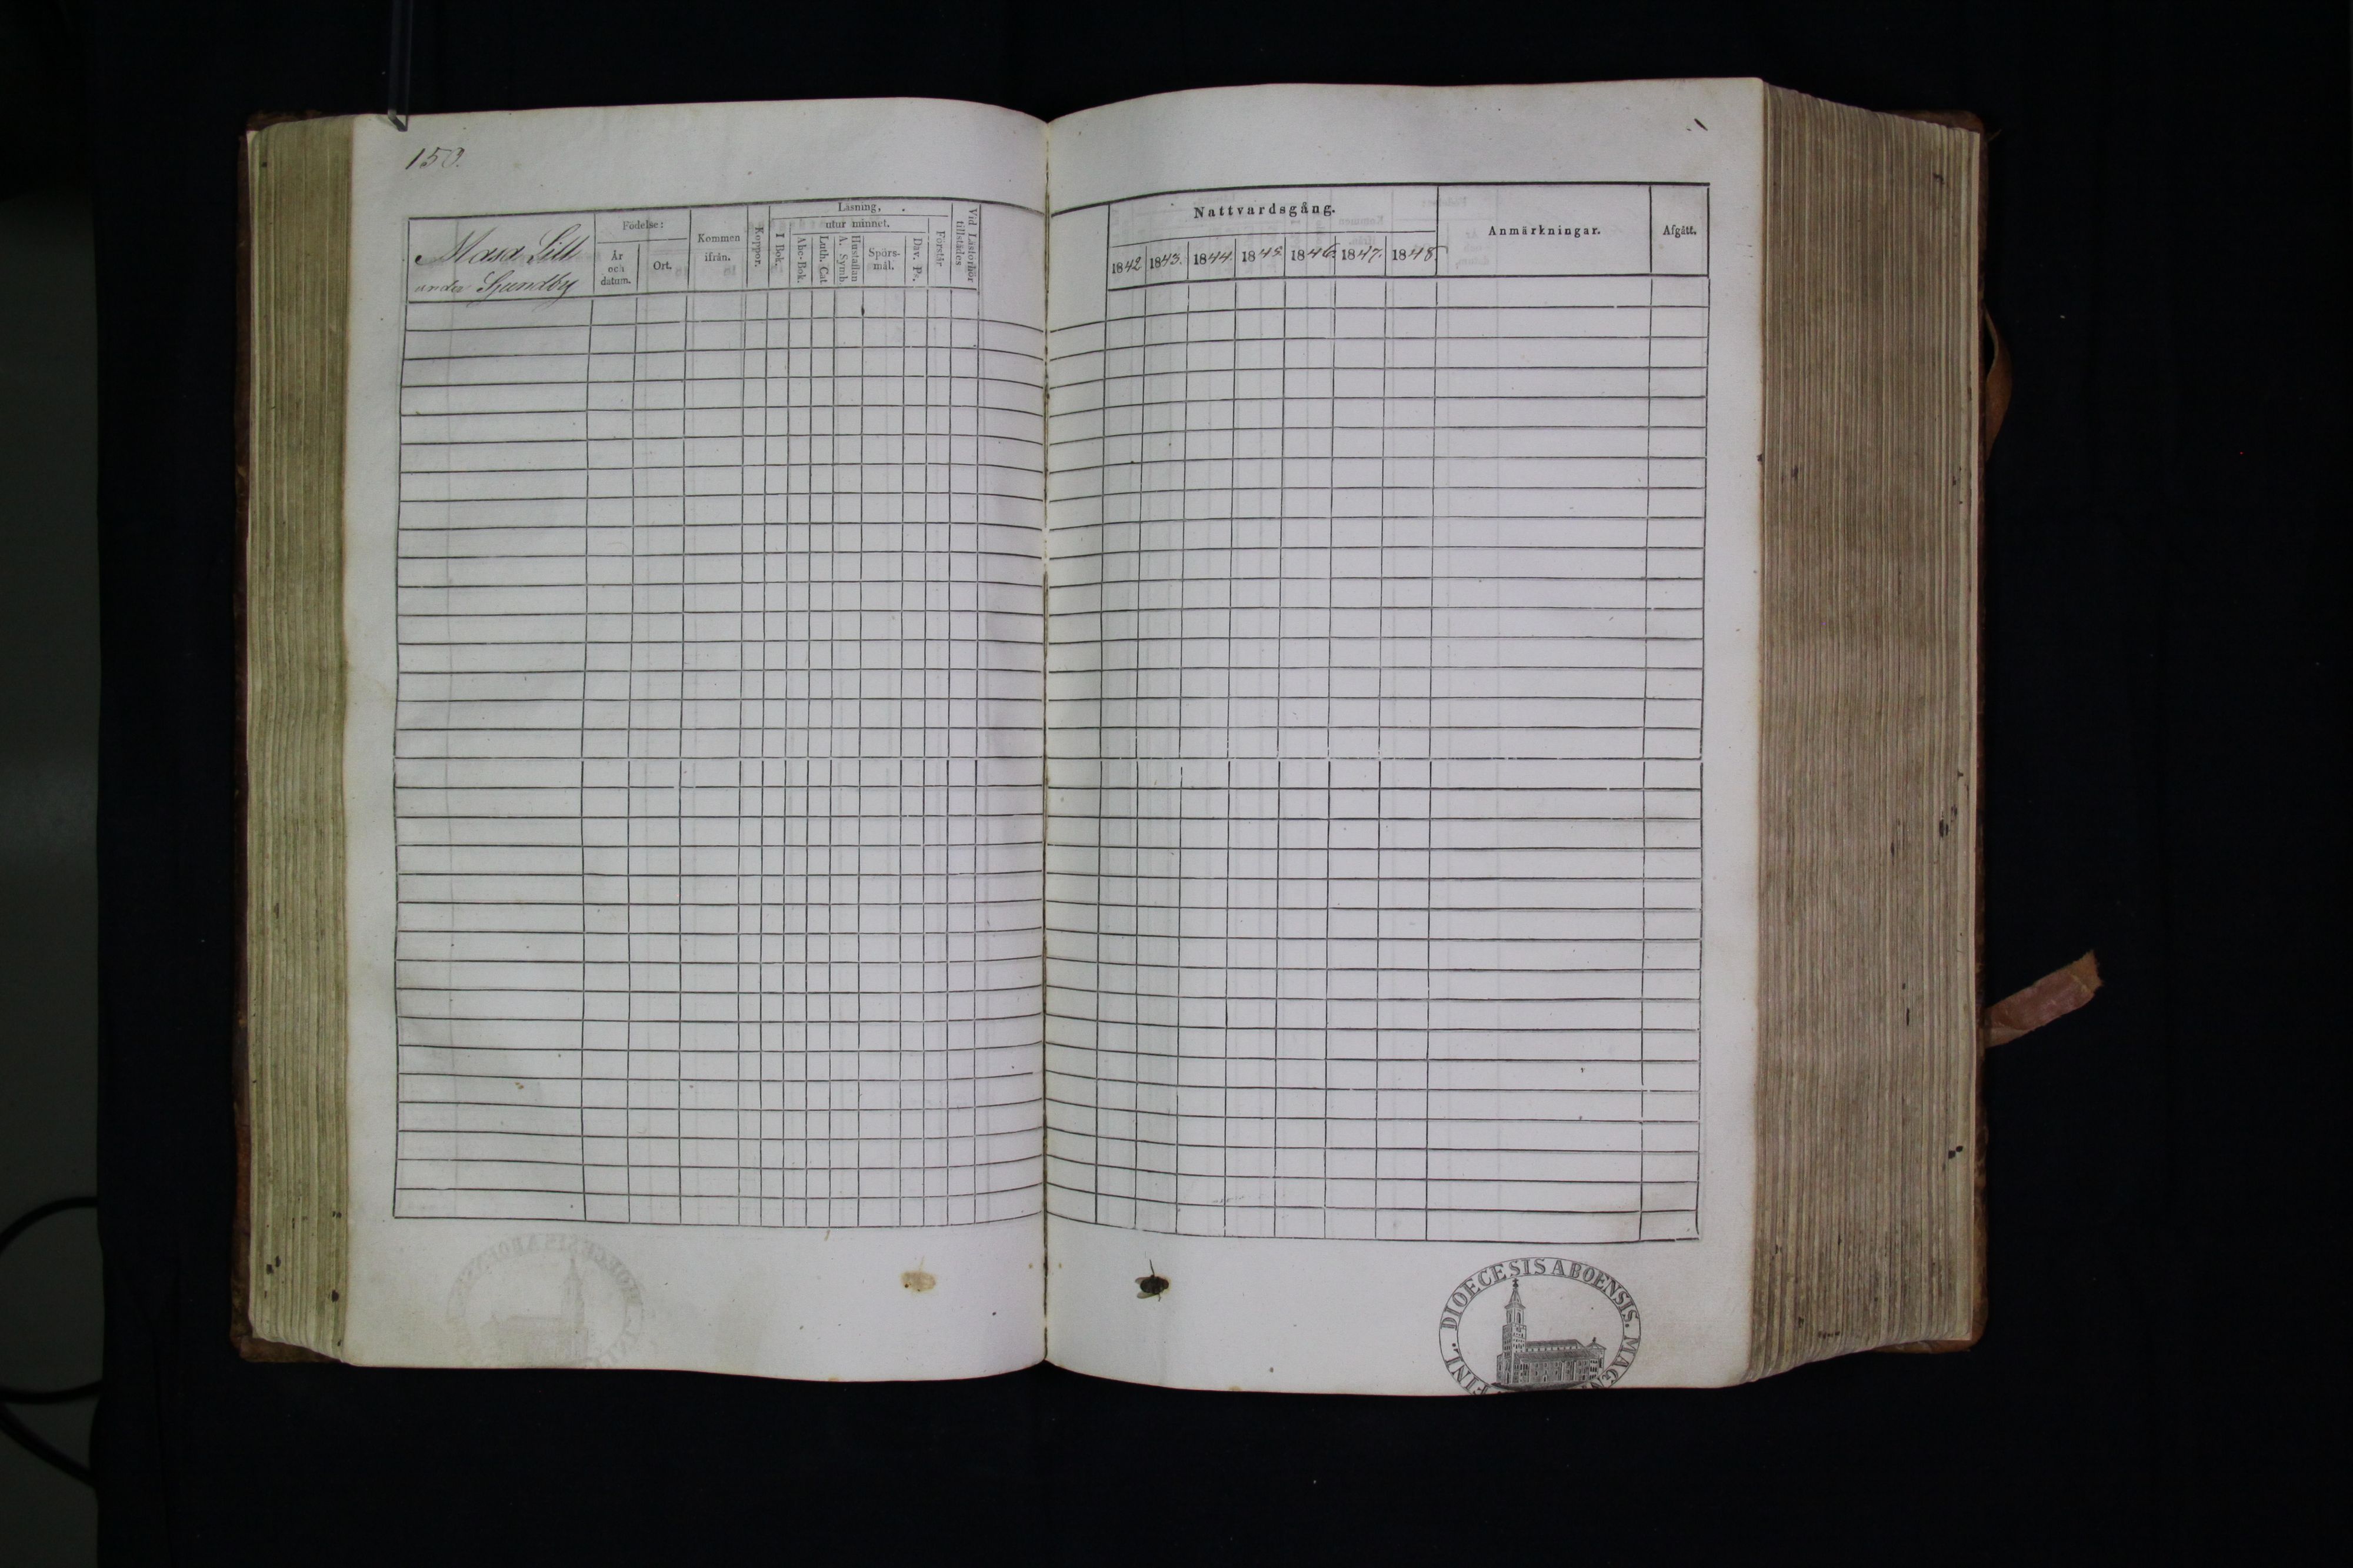 150.
Masa Lill
under Sjundby
Födelse:
År
och
datum.
Ort.
Kommen
ifrån.
Koppor.
Läsning,
utur minnet.
I Bok.
Abc-Bok.
Luth. Cat
A. Symb.
Hustaflan
Spörs-
mål.
Dav. Ps.
Förstår
Vid Läsförhör
tillstädes
Nattvardsgång.
1842 1843. 1844. 1845. 1846. 1847. 1848
Anmärkningar.
Afgått.
FINL. DIOECESIS ABOENSIS. MAG